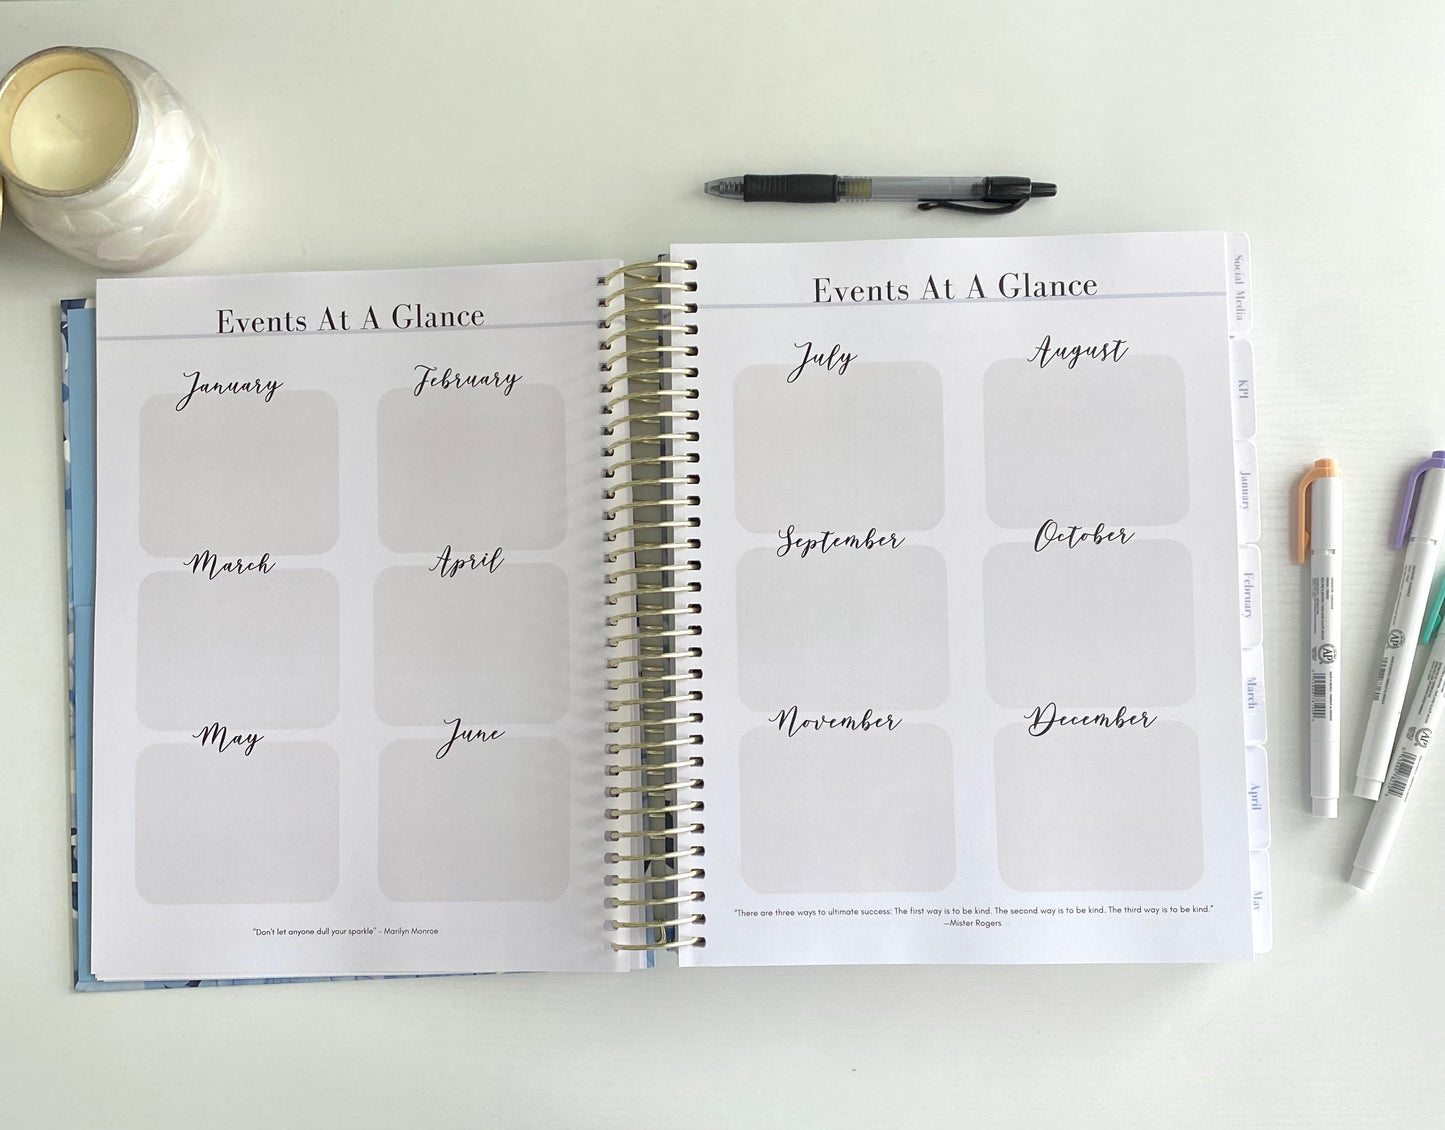 Events At A Glance
January
February
March
April
May
June
"Don't let anyone dull your sparkle" - Marilyn Monroe
Events At A Glance
July
August
September
October
November
December
"There are three ways to ultimate success: The first way is to be kind. The second way is to be kind. The third way is to be kind."
—Mister Rogers
Social Media
KPI
January
February
March
April
May
AP
AP
AP